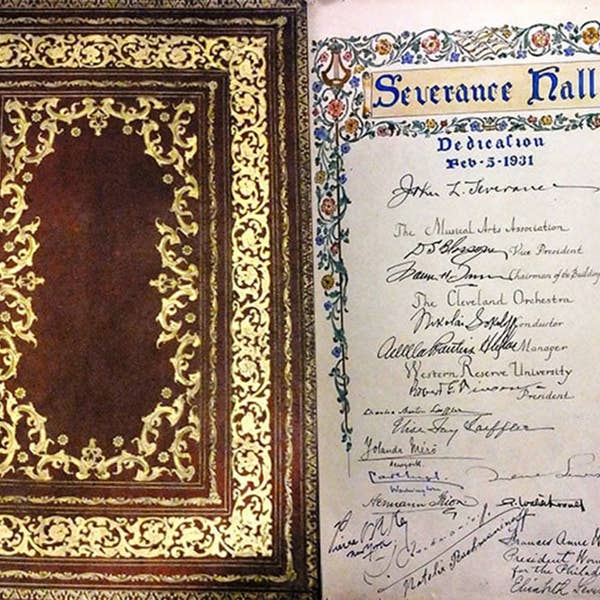 Severance Hall
Dedication
Feb-5-1931
John L. Severance
The Musical Arts Association
Vice President
Chairman of the Building
The Cleveland Orchestra
Nikolai Sokoloff Conductor
Adella Prentiss Hughes Manager
Western Reserve University
Robert E. Vinson
President
Charles Martin Loeffler
Elise Fay Loeffler
Yolanda Mérö
New York.
Carl Engel
Washington
Hermann Irion
Pierre
New York
Natalie Rachmaninoff
Frances Anne
President
for the Philadel
Elisabeth